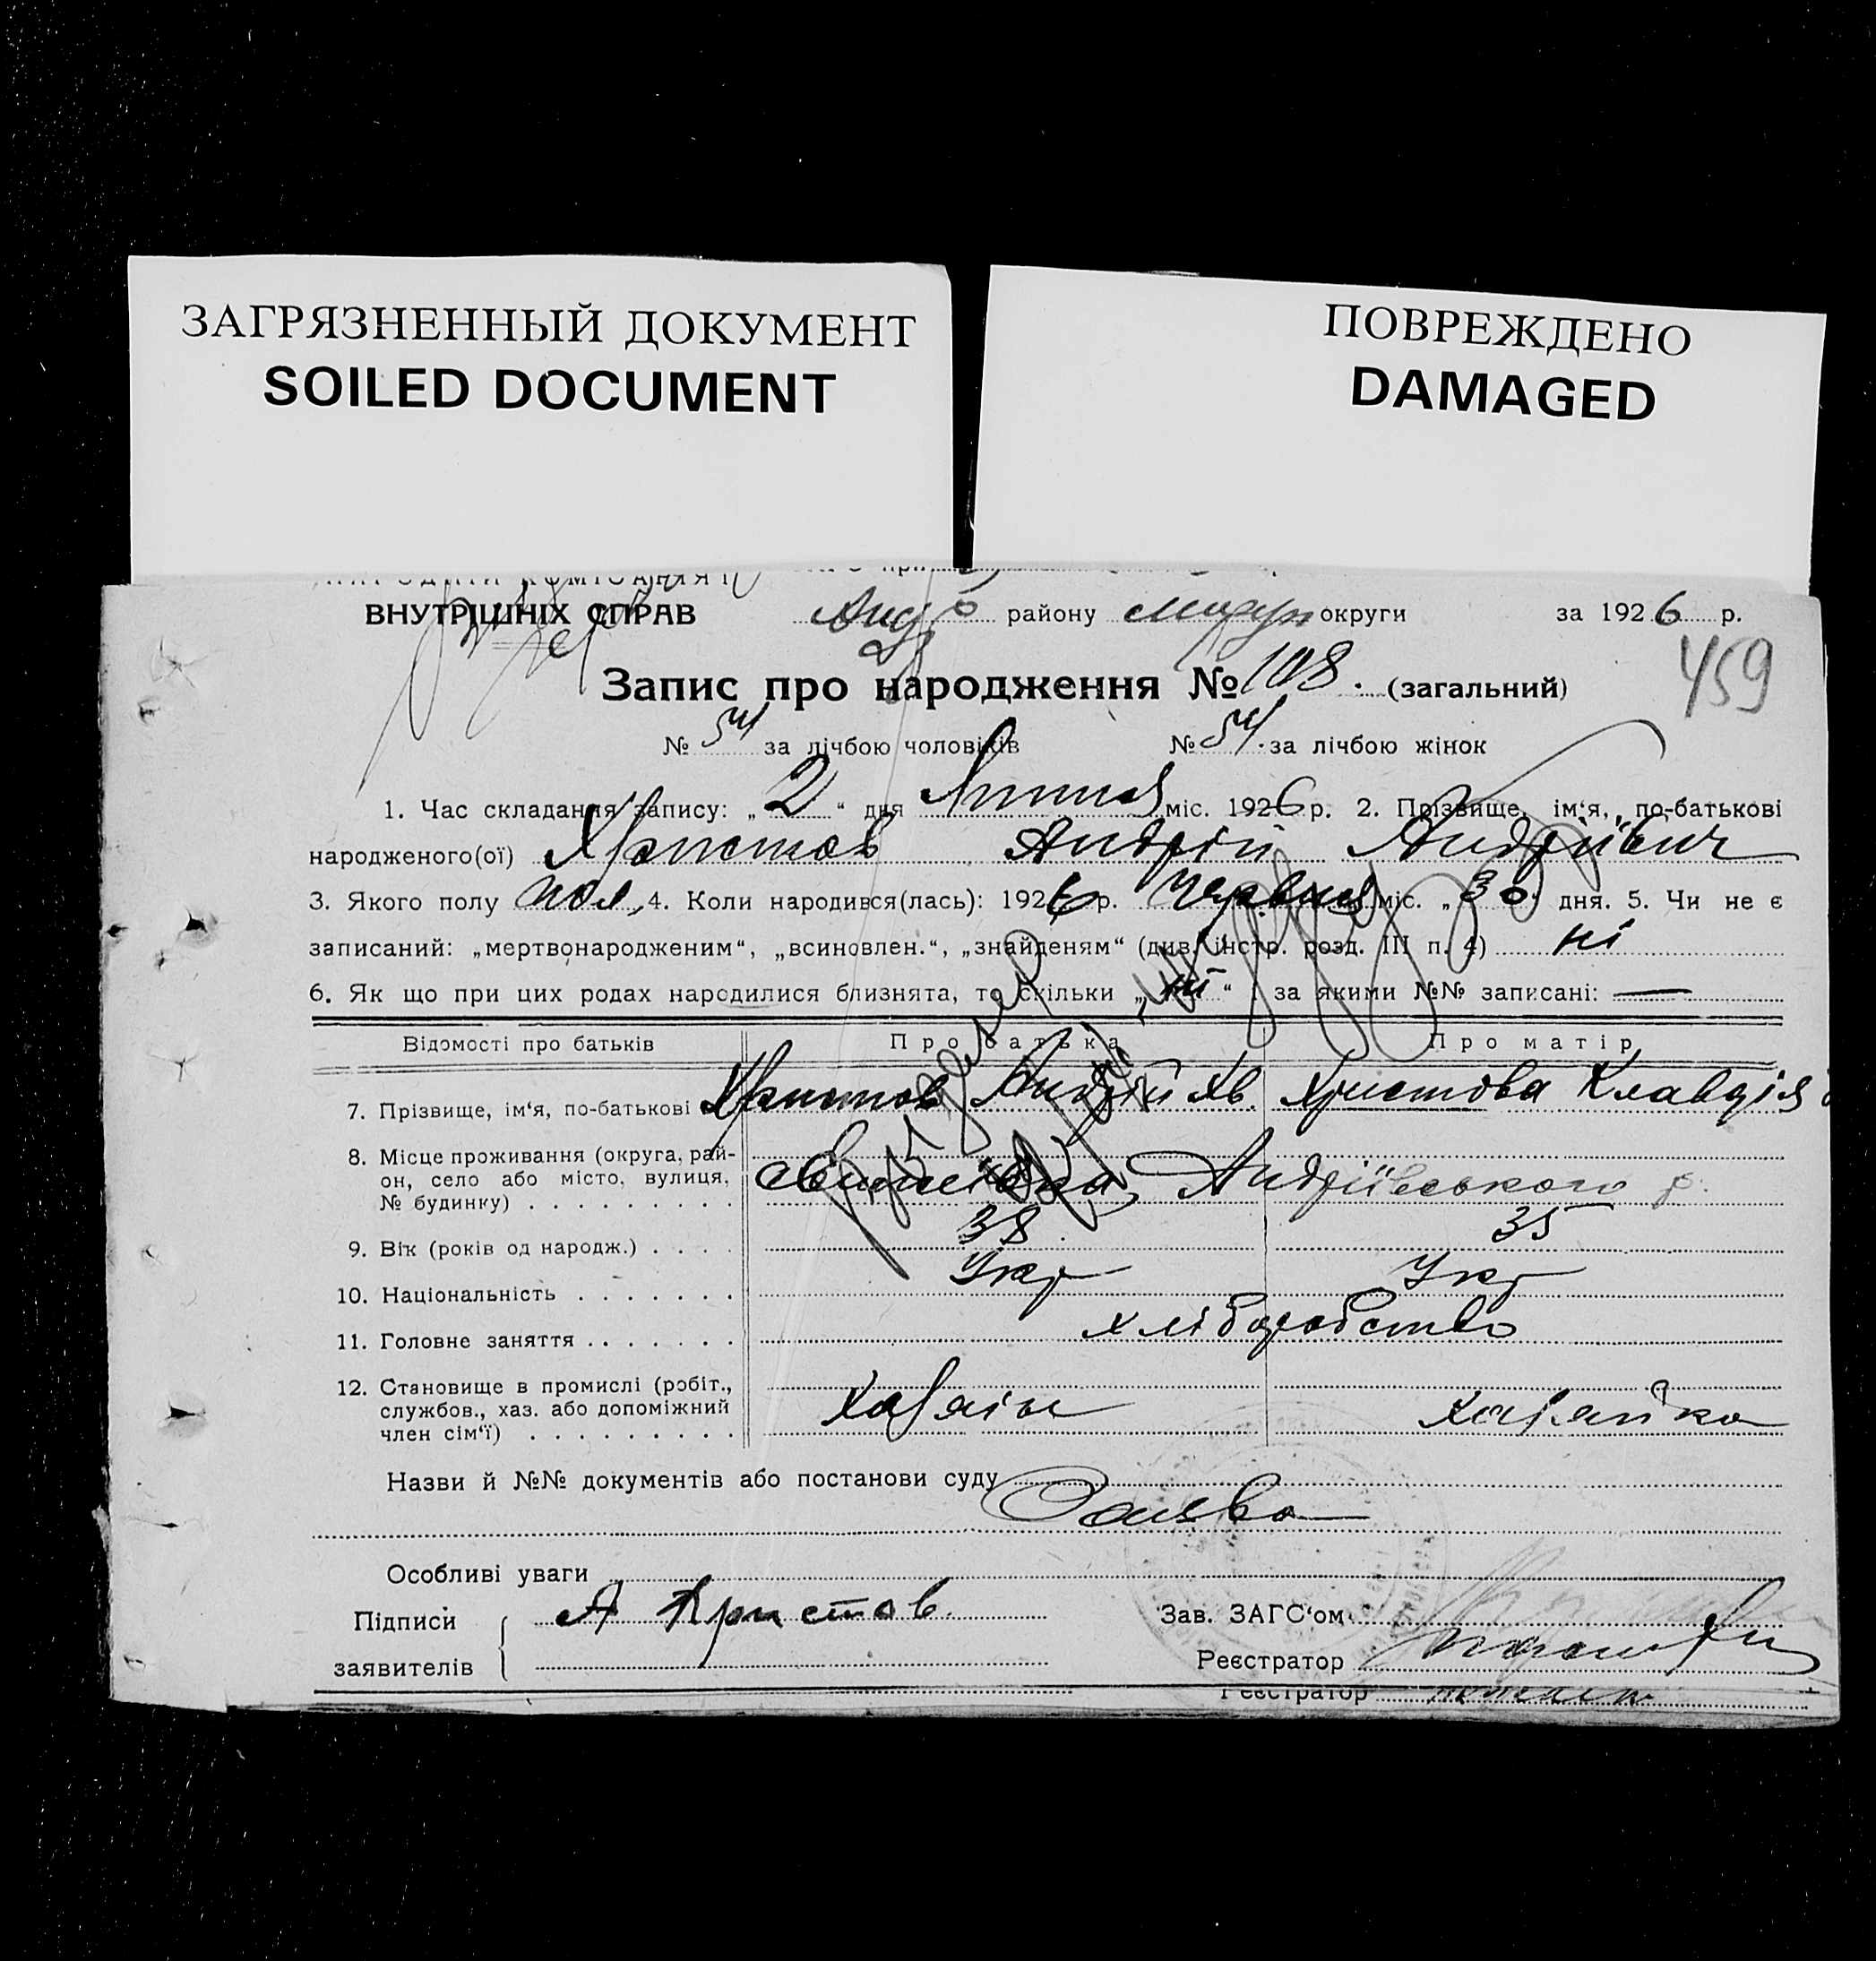 ЗАГРЯЗНЕННЫЙ ДОКУМЕНТ
SOILED DOCUMENT
ПОВРЕЖДЕНО
DAMAGED
ВНУТРІШНІХ СПРАВ району округи за 1926 р.
459
Запис про народження № 108. (загальний)
№ 54 за лічбою чоловіків № 54. за лічбою жінок
1. Час складання запису: „2“ дня Липня міс. 1926 р. 2. Прізвище, ім‘я, по-батькові
народженого(ої) Христов Андрій Андрійович
3. Якого полу чол. 4. Коли народився(лась): 1926 р. Червня міс. „30“ дня. 5. Чи не є
записаний: „мертвонародженим“, „всиновлен.“, „знайденям“ (див. інстр. розд. III п. 4) ні
6. Як що при цих родах народилися близнята, то скільки „ні“ за якими №№ записані: —
Відомості про батьків Про батька Про матір
7. Прізвище, ім‘я, по-батькові Христов Андрій Христова Клавдія
8. Місце проживання (округа, рай-
он, село або місто, вулиця, Андріївського р.
№ будинку) . . . . . . . . .
9. Вік (років од народж.) . . . . 38 35
10. Національність . . . . . . . Укр Укр
11. Головне заняття . . . . . . . хліборобство
12. Становище в промислі (робіт.,
службов., хаз. або допоміжний Хазяїн Хазяйка
член сім‘ї) . . . . . . . . .
Назви й №№ документів або постанови суду
Заява
Особливі уваги
Підписи А Христов. Зав. ЗАГС‘ом
заявителів Реєстратор
Реєстратор